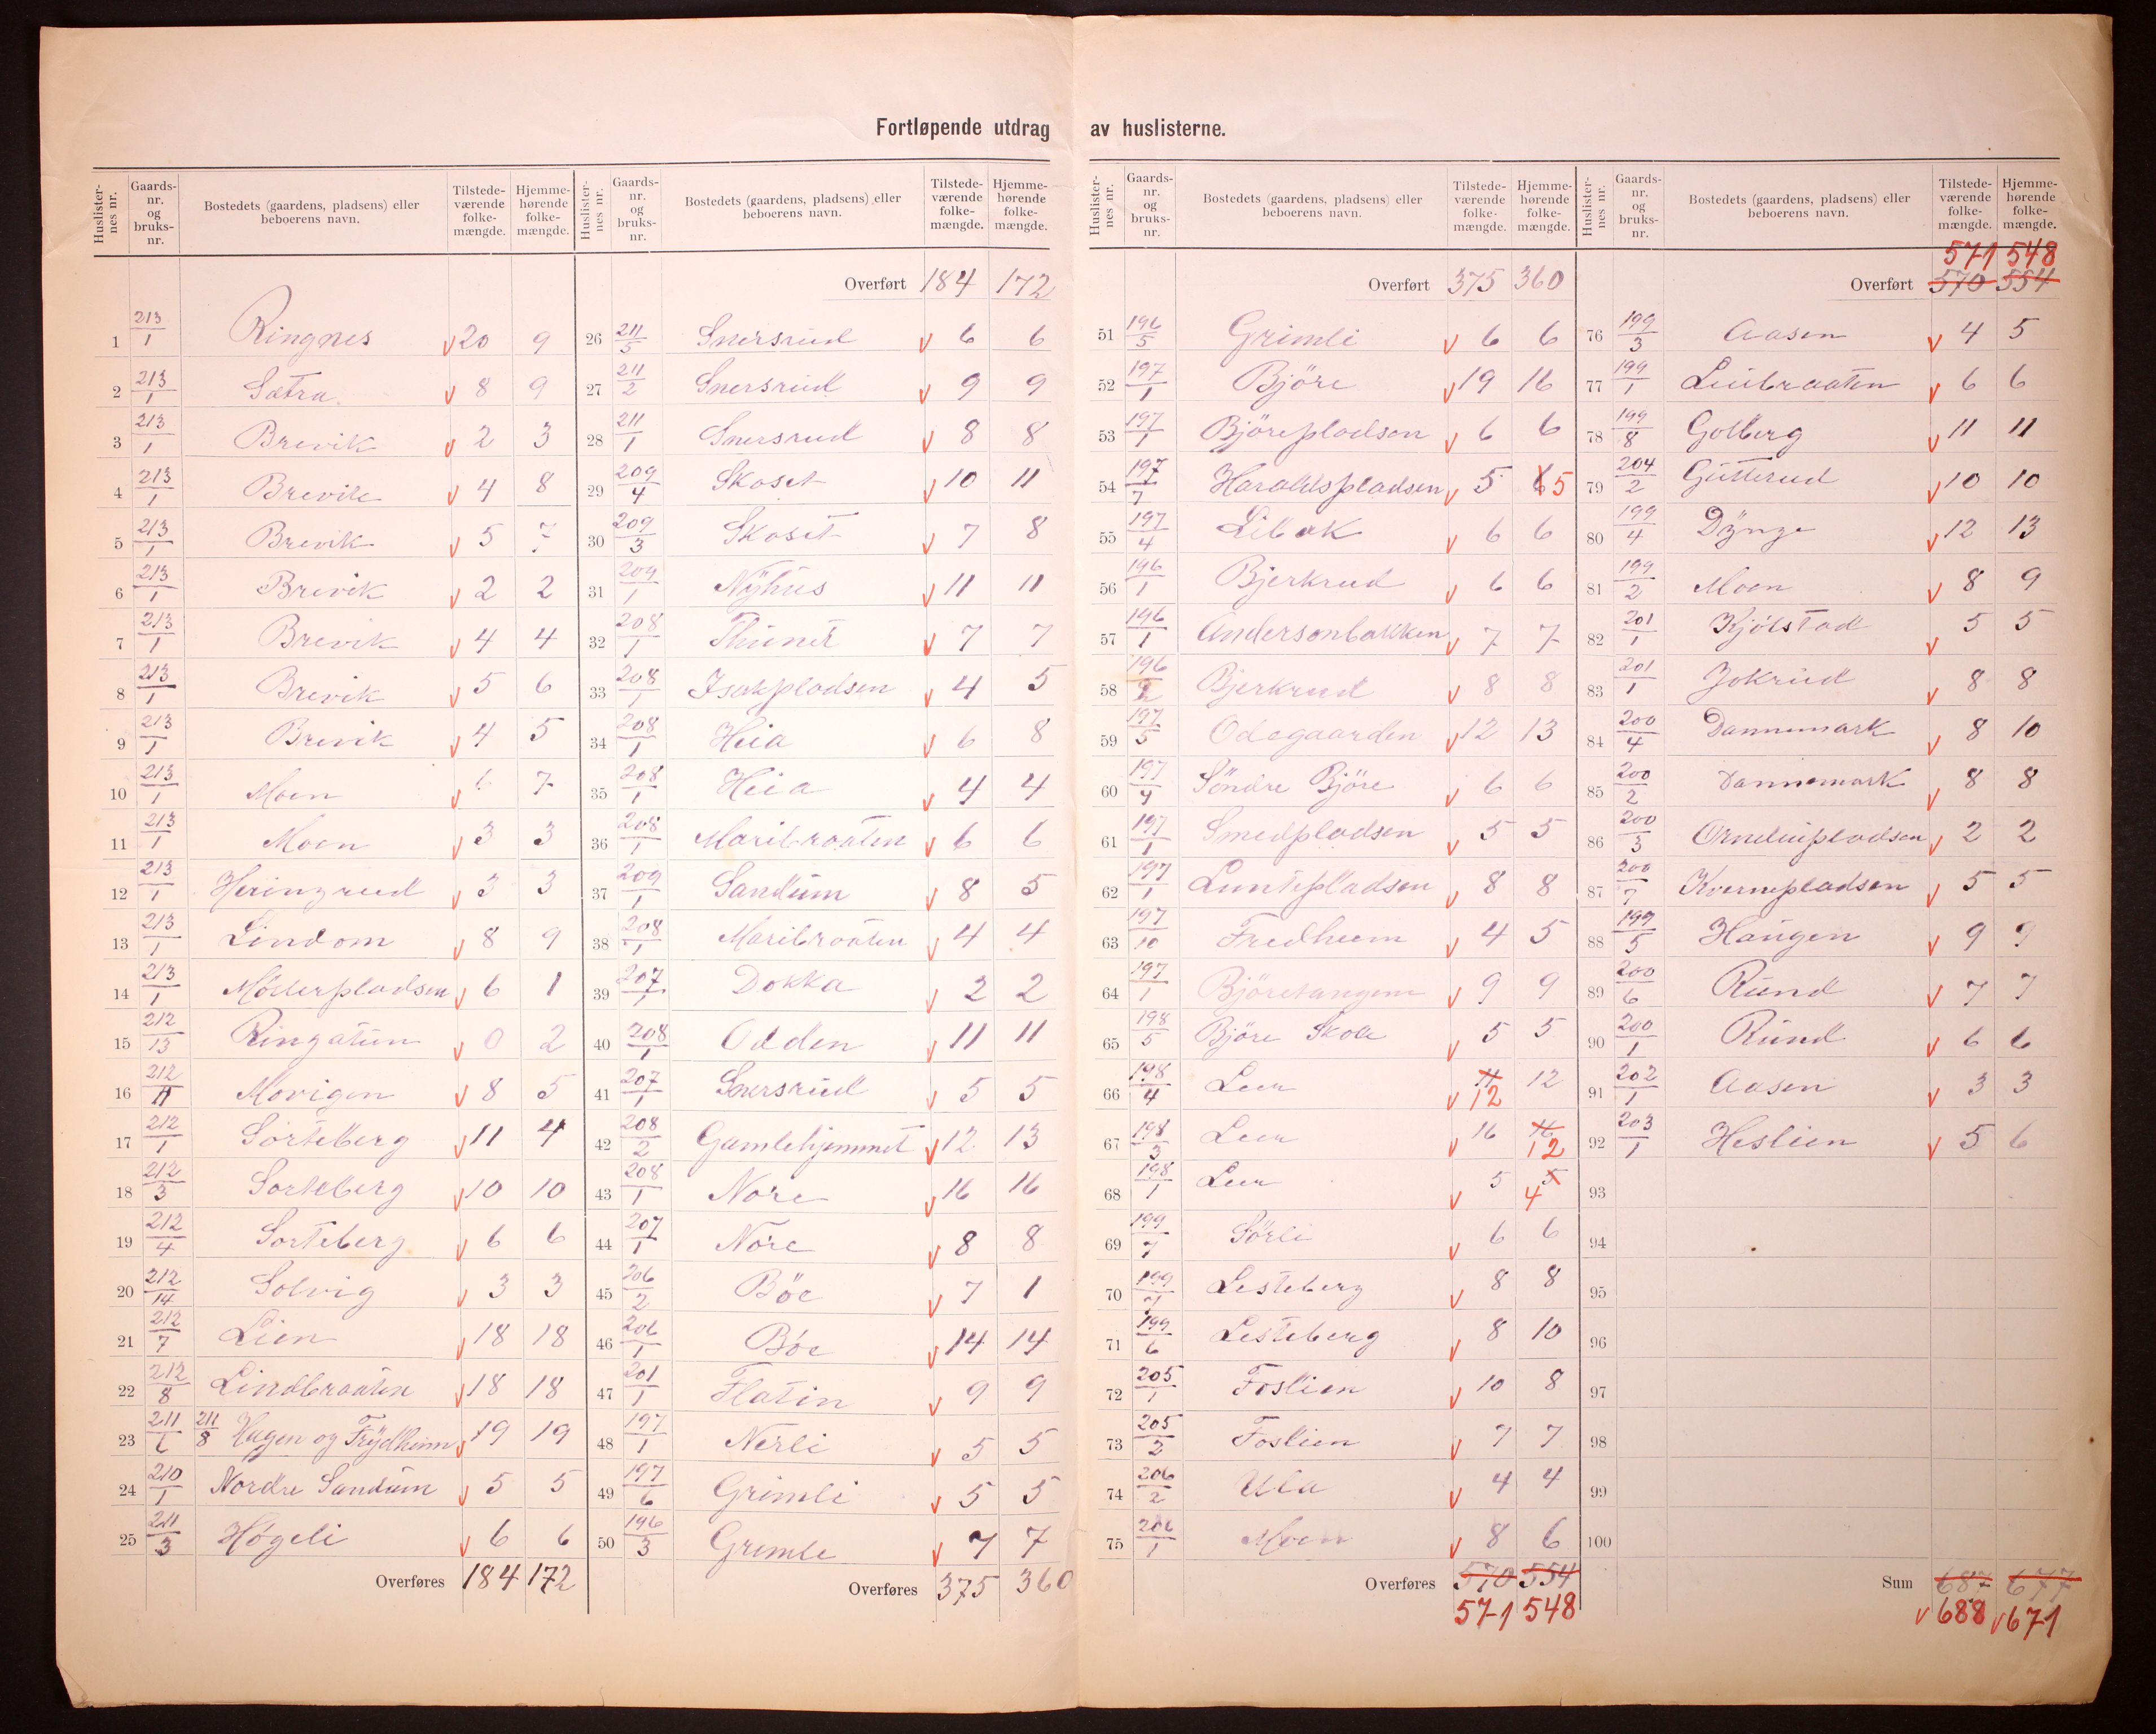 Fortløpende utdrag av huslisterne.
Huslister-nes nr. | Gaards-nr. og bruks-nr. | Bostedets (gaardens, pladsens) eller beboerens navn. | Tilstede-værende folke-mængde. | Hjemme-hørende folke-mængde.
1 213/1 Ringnes 20 9
2 213/1 Satra 8 9
3 213/1 Brevik 2 3
4 213/1 Brevik 4 8
5 213/1 Brevik 5 7
6 213/1 Brevik 2 2
7 213/1 Brevik 4 4
8 213/1 Brevik 5 6
9 213/1 Brevik 4 5
10 213/1 Moen 6 7
11 213/1 Moen 3 3
12 213/1 Heringrud 3 3
13 213/1 Lindom 8 9
14 213/1 Møllerpladsen 6 1
15 212/13 Ringatun 0 2
16 212/11 Morigen 8 5
17 212/1 Sorteberg 11 4
18 212/3 Sorteberg 10 10
19 212/4 Sorteberg 6 6
20 212/14 Solvig 3 3
21 212/7 Lien 18 18
22 212/8 Lindbraaten 18 18
23 211/6 211/8 Hagen og Frydheim 19 19
24 210/1 Nordre Sandum 5 5
25 211/3 Høgeli 6 6
Overføres 184 172
Huslister-nes nr. | Gaards-nr. og bruks-nr. | Bostedets (gaardens, pladsens) eller beboerens navn. | Tilstede-værende folke-mængde. | Hjemme-hørende folke-mængde.
Overført 184 172
26 211/5 Snersrud 6 6
27 211/2 Snersrud 9 9
28 211/1 Snersrud 8 8
29 209/4 Skaset 10 11
30 209/3 Skaset 7 8
31 209/1 Nyhus 11 11
32 208/1 Thunet 7 7
33 208/1 Isakpladsen 4 5
34 208/1 Heia 6 8
35 208/1 Heia 4 4
36 208/1 Maribraaten 6 6
37 209/1 Sandum 8 5
38 208/1 Maribraaten 4 4
39 207/1 Dokka 2 2
40 208/1 Odden 11 11
41 207/1 Snersrud 5 5
42 208/2 Gamlehjemmet 12 13
43 208/1 Nore 16 16
44 207/1 Nore 8 8
45 206/2 Böe 7 1
46 206/1 Böe 14 14
47 201/1 Flatin 9 9
48 197/1 Nerli 5 5
49 197/6 Grimli 5 5
50 196/3 Grimli 7 7
Overføres 375 360
Huslister-nes nr. | Gaards-nr. og bruks-nr. | Bostedets (gaardens, pladsens) eller beboerens navn. | Tilstede-værende folke-mængde. | Hjemme-hørende folke-mængde.
Overført 375 360
51 196/5 Grimli 6 6
52 197/1 Björe 19 16
53 197/1 Björepladsen 6 6
54 197/7 Haraldspladsen 5 6 5
55 197/4 Libak 6 6
56 196/1 Bjerkrud 6 6
57 196/1 Andersonbakken 7 7
58 196/2 Bjerkrud 8 8
59 197/5 Odegaarden 12 13
60 197/9 Söndre Björe 6 6
61 197/1 Smedpladsen 5 5
62 197/1 Luntepladsen 8 8
63 197/10 Fredheim 4 5
64 197/1 Björetangem 9 9
65 198/5 Björe Skole 5 5
66 198/4 Leen 11 12 12
67 198/3 Leen 16 16 12
68 198/1 Leen 5 5 4
69 199/7 Sörli 6 6
70 199/7 Lesteberg 8 8
71 199/6 Lesteberg 8 10
72 205/1 Foslien 10 8
73 205/2 Foslien 7 7
74 206/2 Ula 4 4
75 206/1 Moen 8 6
Overføres 570 554
571 548
Huslister-nes nr. | Gaards-nr. og bruks-nr. | Bostedets (gaardens, pladsens) eller beboerens navn. | Tilstede-værende folke-mængde. | Hjemme-hørende folke-mængde.
571 548
Overført 570 554
76 199/3 Aasen 4 5
77 199/1 Leubraaten 6 6
78 199/8 Golberg 11 11
79 204/2 Gutterud 10 10
80 199/4 Dynge 12 13
81 199/2 Moen 8 9
82 201/1 Kjölstad 5 5
83 201/1 Jokrud 8 8
84 200/4 Dannemark 8 10
85 200/2 Dannemark 8 8
86 200/3 Ornehiupladsen 2 2
87 200/7 Kvernepladsen 5 5
88 199/5 Haugen 9 9
89 200/6 Rund 7 7
90 200/1 Rund 6 6
91 202/1 Aasen 3 3
92 203/1 Heslien 5 6
93
94
95
96
97
98
99
100
Sum 687 677
688 671